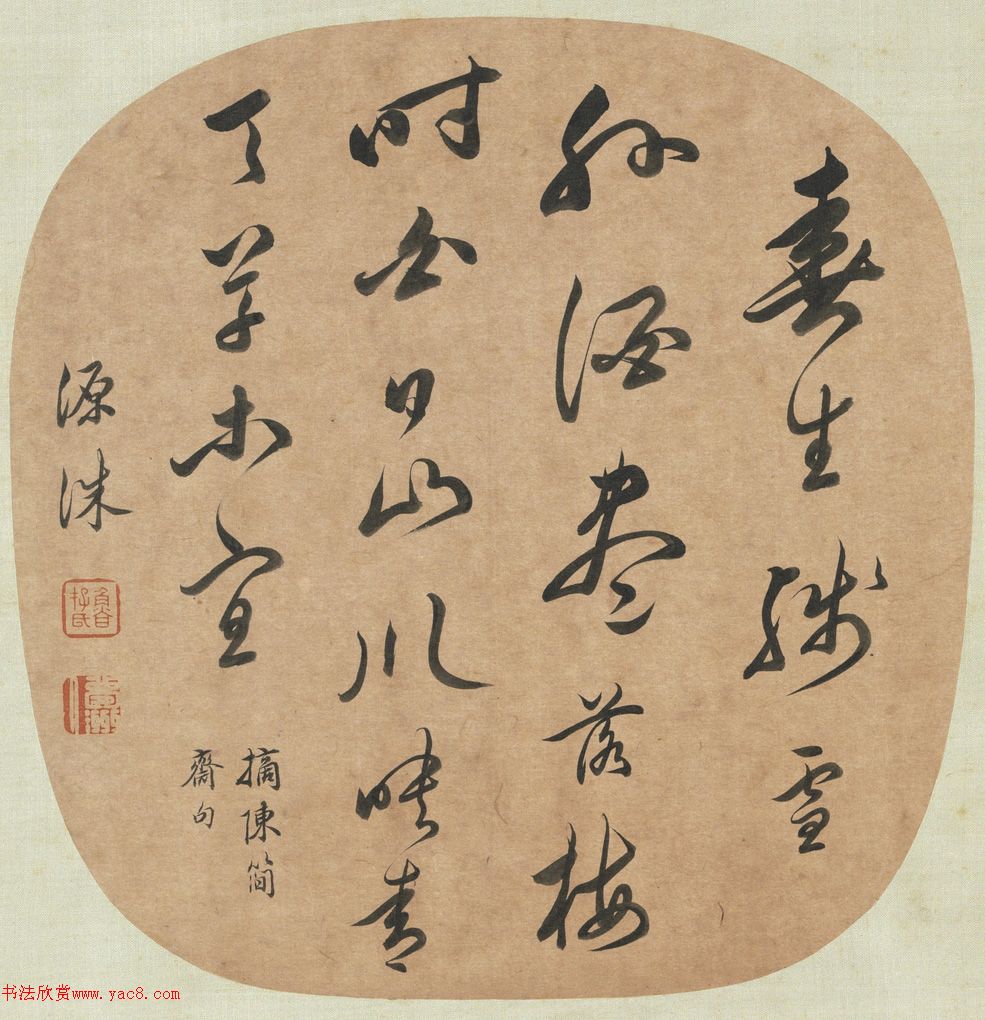 春生殘雪
外酒盡落梅
時白日山川映青
天草木宣
摘陳簡
齋句
源洙
書法欣赏www.yac8.com